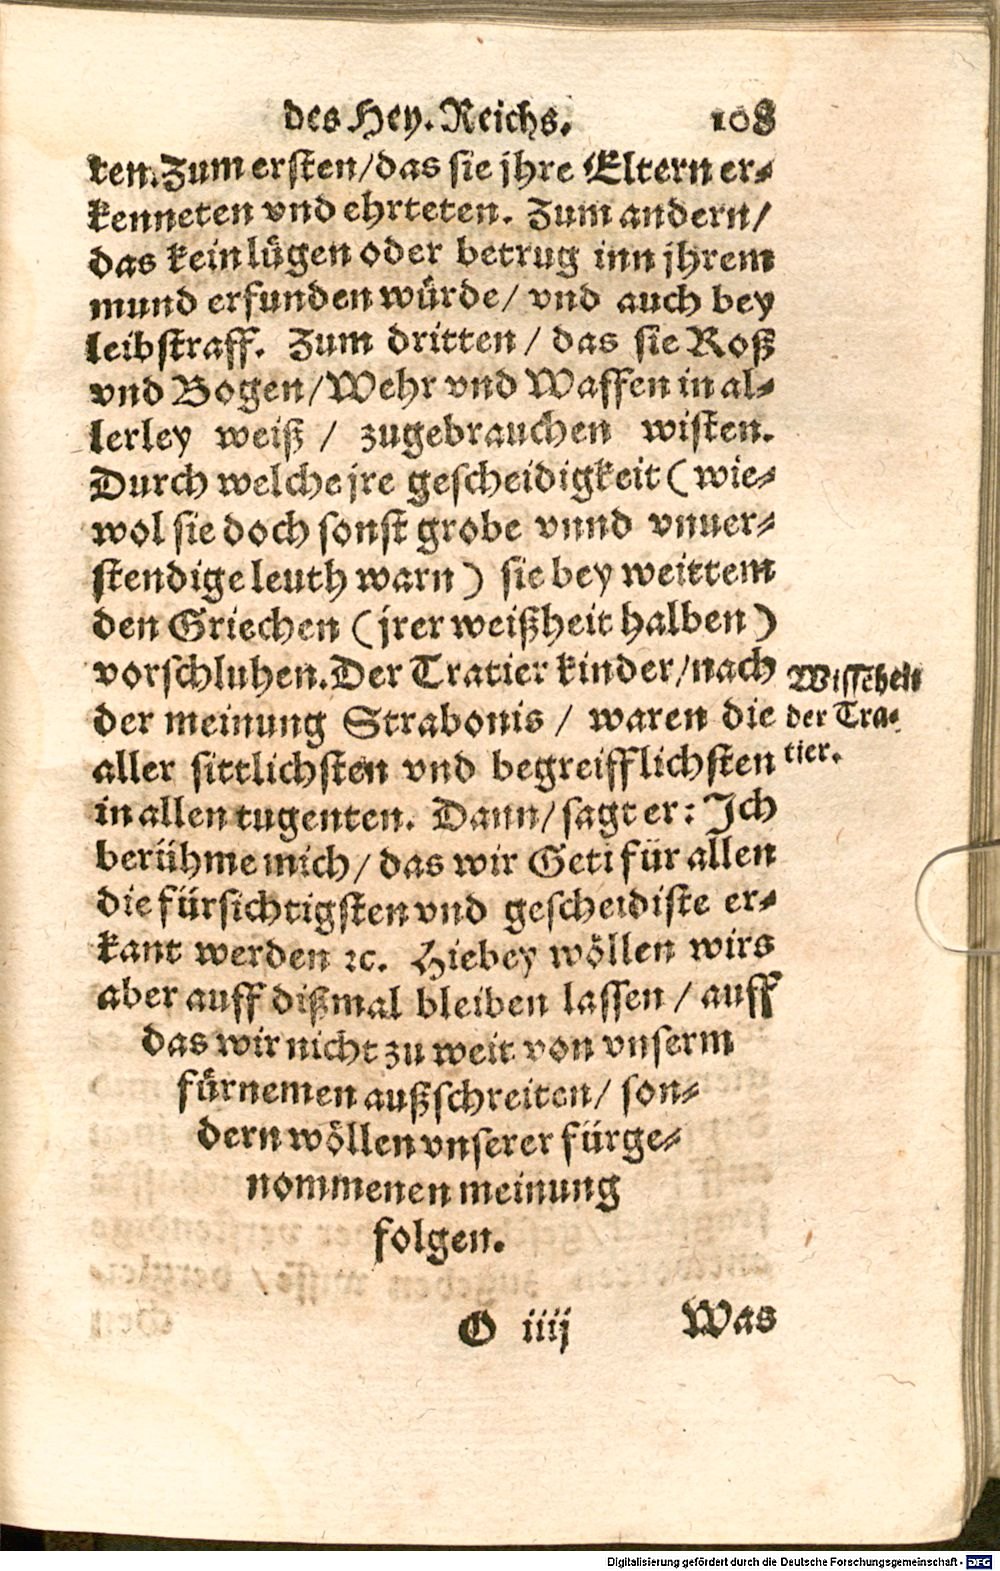 des Hey. Reichs. 108
ten. Zum ersten/das sie jhre Eltern er-
kenneten vnd ehrteten. Zum andern/
das kein lügen oder betrug inn jhrem
mund erfunden würde/ vnd auch bey
leibstraff. Zum dritten / das sie Roß
vnd Bogen/Wehr vnd Waffen in al-
lerley weiß / zugebrauchen wisten.
Durch welche jre gescheidigkeit (wie-
wol sie doch sonst grobe vnnd vnuer-
stendige leuth warn) sie bey weittem
den Griechen (jrer weißheit halben)
vorschluhen. Der Tratier kinder/nach
der meinung Strabonis / waren die
aller sittlichsten vnd begreifflichsten
in allen tugenten. Dann/sagt er: Ich
berühme mich/das wir Geti für allen
die fürsichtigsten vnd gescheidiste er-
kant werden ꝛc. Hiebey wöllen wirs
aber auff dißmal bleiben lassen / auff
das wir nicht zu weit von vnserm
fürnemen außschreiten/ son-
dern wöllen vnserer fürge-
nommenen meinung
folgen.
Wissheit
der Tra-
tier.
O iiij Was
Digitalisierung gefördert durch die Deutsche Forschungsgemeinschaft - DFG